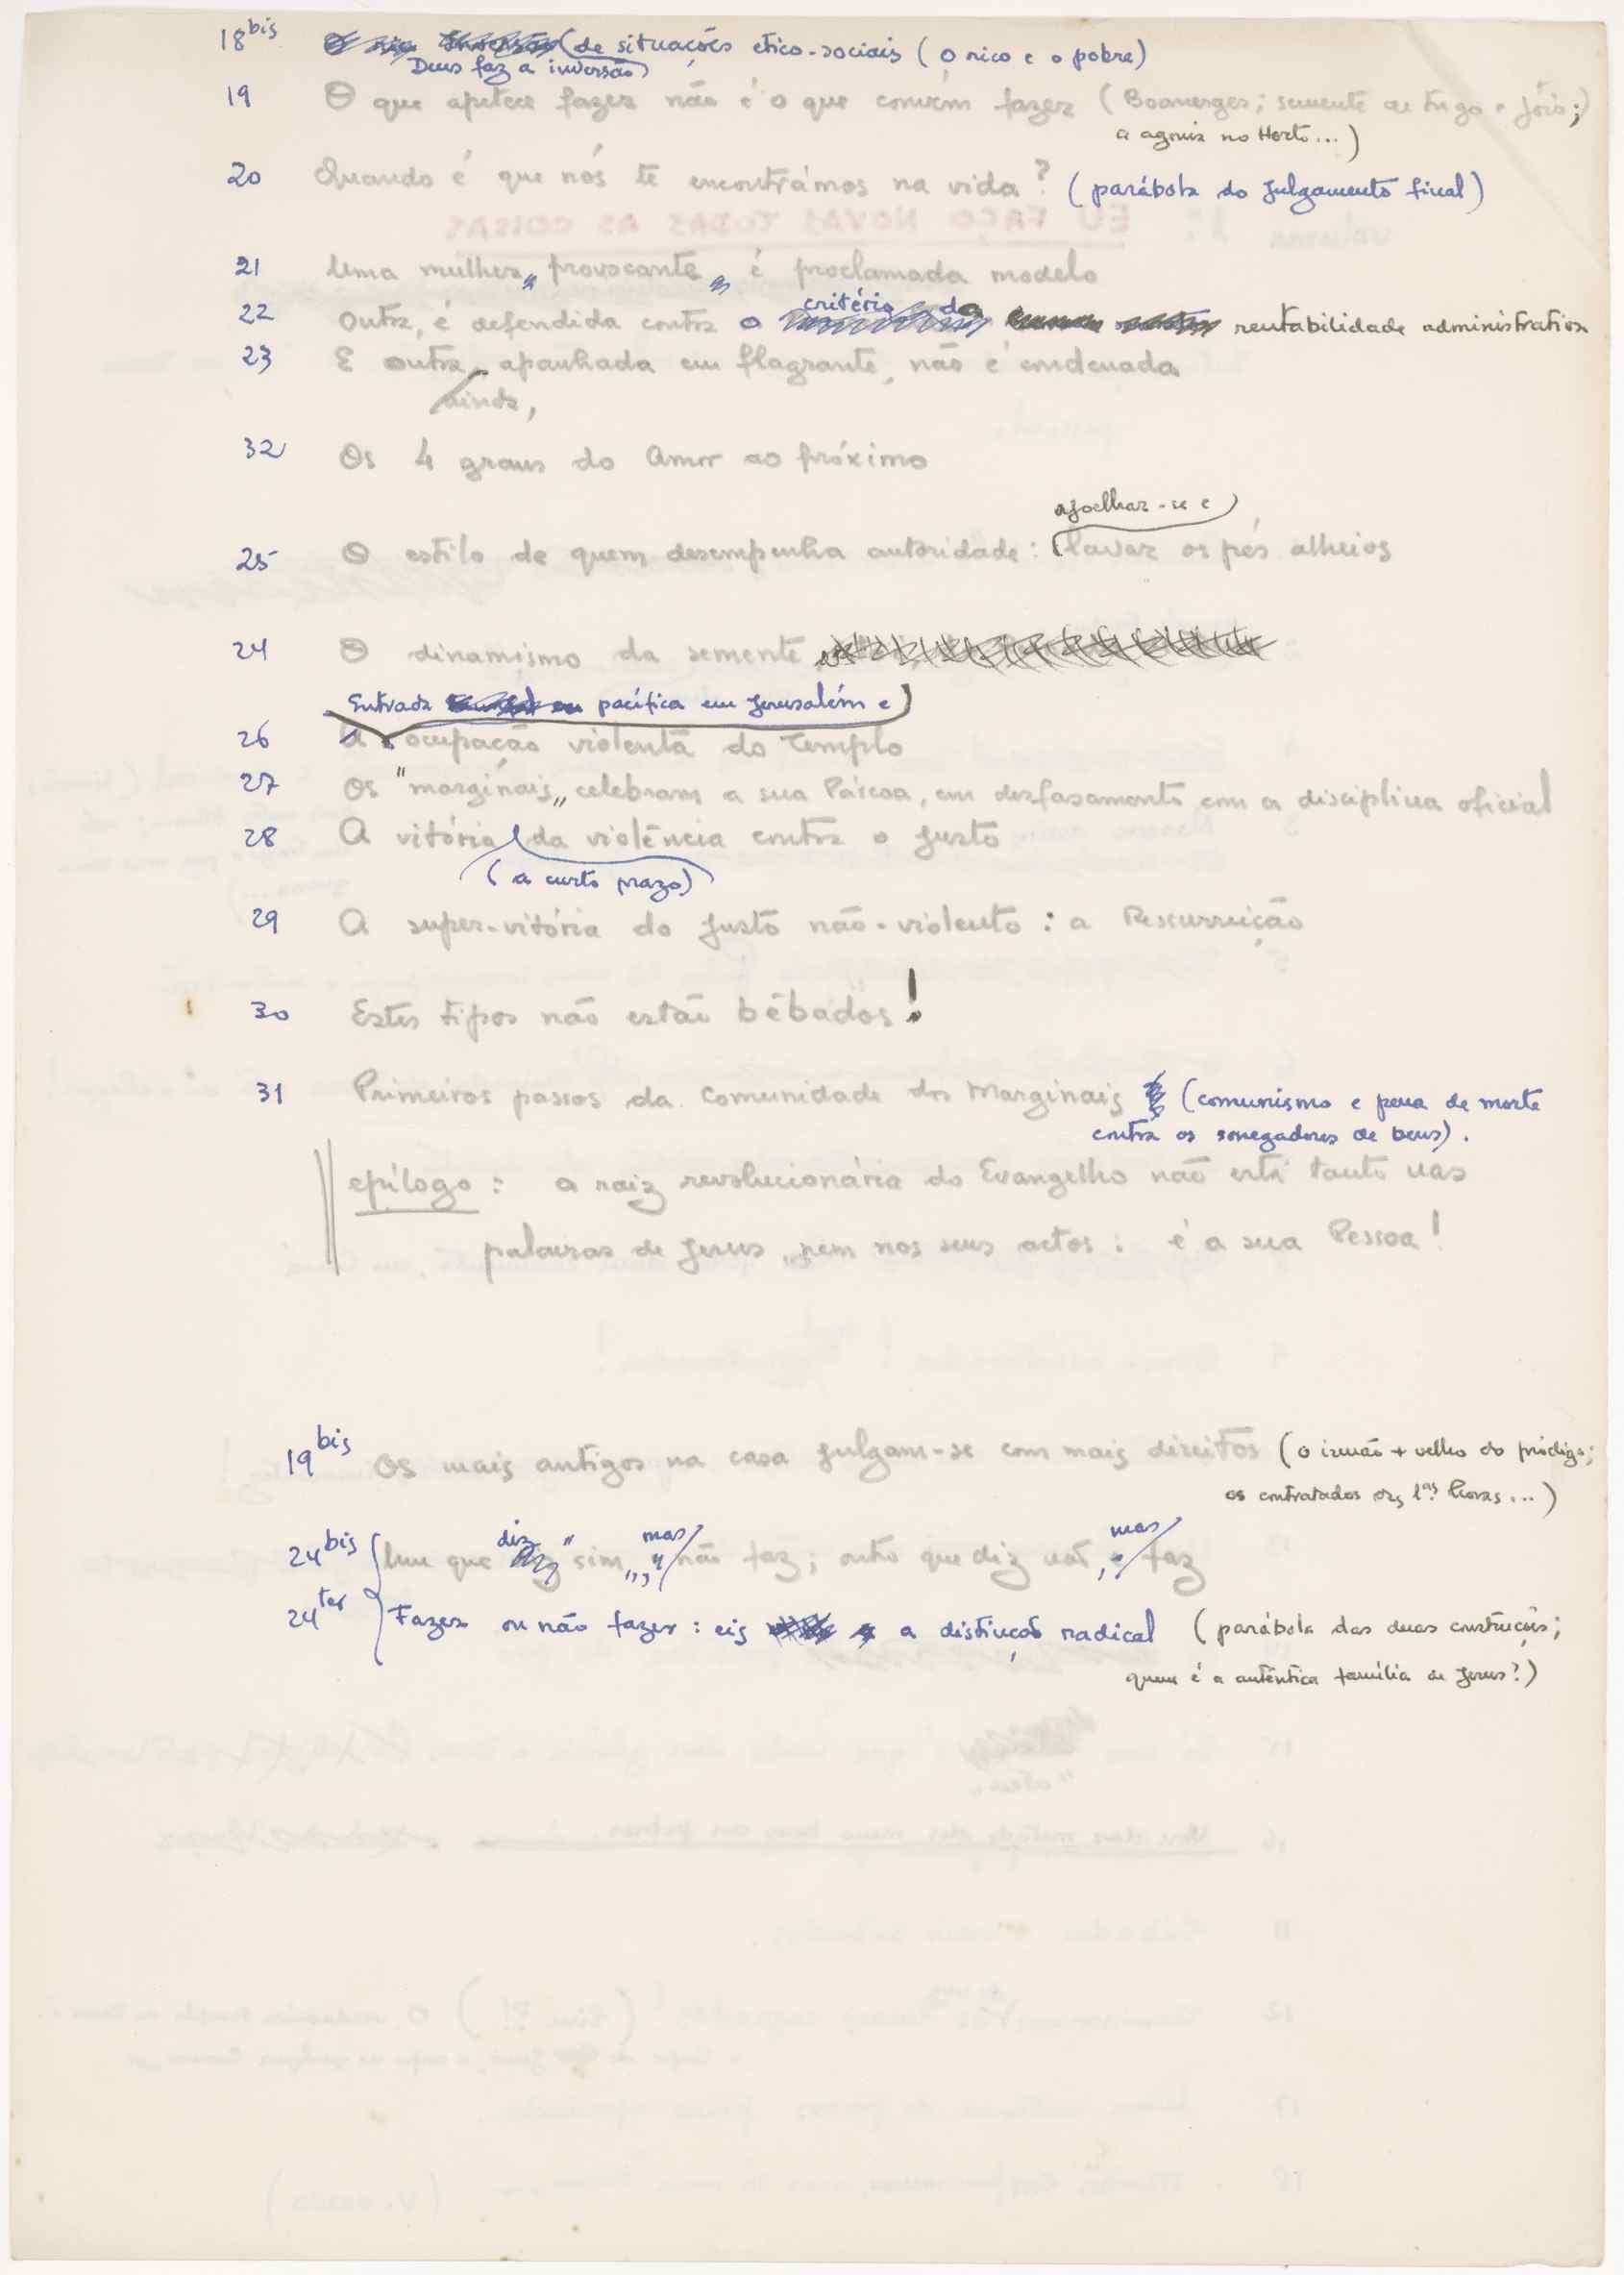 18 bis de situações ético-sociais (o rico e o pobre)
Deus faz a inversão
19 O que apetece fazer não é o que convém fazer (Boanerges; semente de trigo e jóio;)
a agonia no Horto...)
20 Quando é que nós te encontrámos na vida? (parábola do julgamento final)
EU FAÇO NOVAS TODAS AS COISAS
21 Uma mulher "provocante" é proclamada modelo
critério da
22 Outra, é defendida contra o rentabilidade administrativa
23 E outra, apanhada em flagrante, não é condenada
ainda,
32 Os 4 graus do Amor ao próximo
ajoelhar-se e
25 O estilo de quem desempenha autoridade: lavar os pés alheios
24 O dinamismo da semente
Entrada pacífica em Jerusalém e
26 ocupação violenta do Templo
27 Os "marginais" celebram a sua Páscoa, em desfasamento com a disciplina oficial
28 A vitória da violência contra o justo
(a curto prazo)
29 A super-vitória do justo não-violento: a Ressurreição
30 Estes tipos não estão bêbados!
31 Primeiros passos da Comunidade dos Marginais (comunismo e pena de morte
contra os sonegadores de bens).
epílogo: a raiz revolucionária do Evangelho não está tanto nas
palavras de Jesus, nem nos seus actos: é a sua Pessoa!
19 bis Os mais antigos na casa julgam-se com mais direitos (o irmão + velho do pródigo;
os contratados das 1as horas...)
diz mas mas
24 bis Um que "sim", não faz; outro que diz não, faz
24 ter Fazer ou não fazer: eis a distinção radical (parábola das duas construções;
quem é a autêntica família de Jesus?)